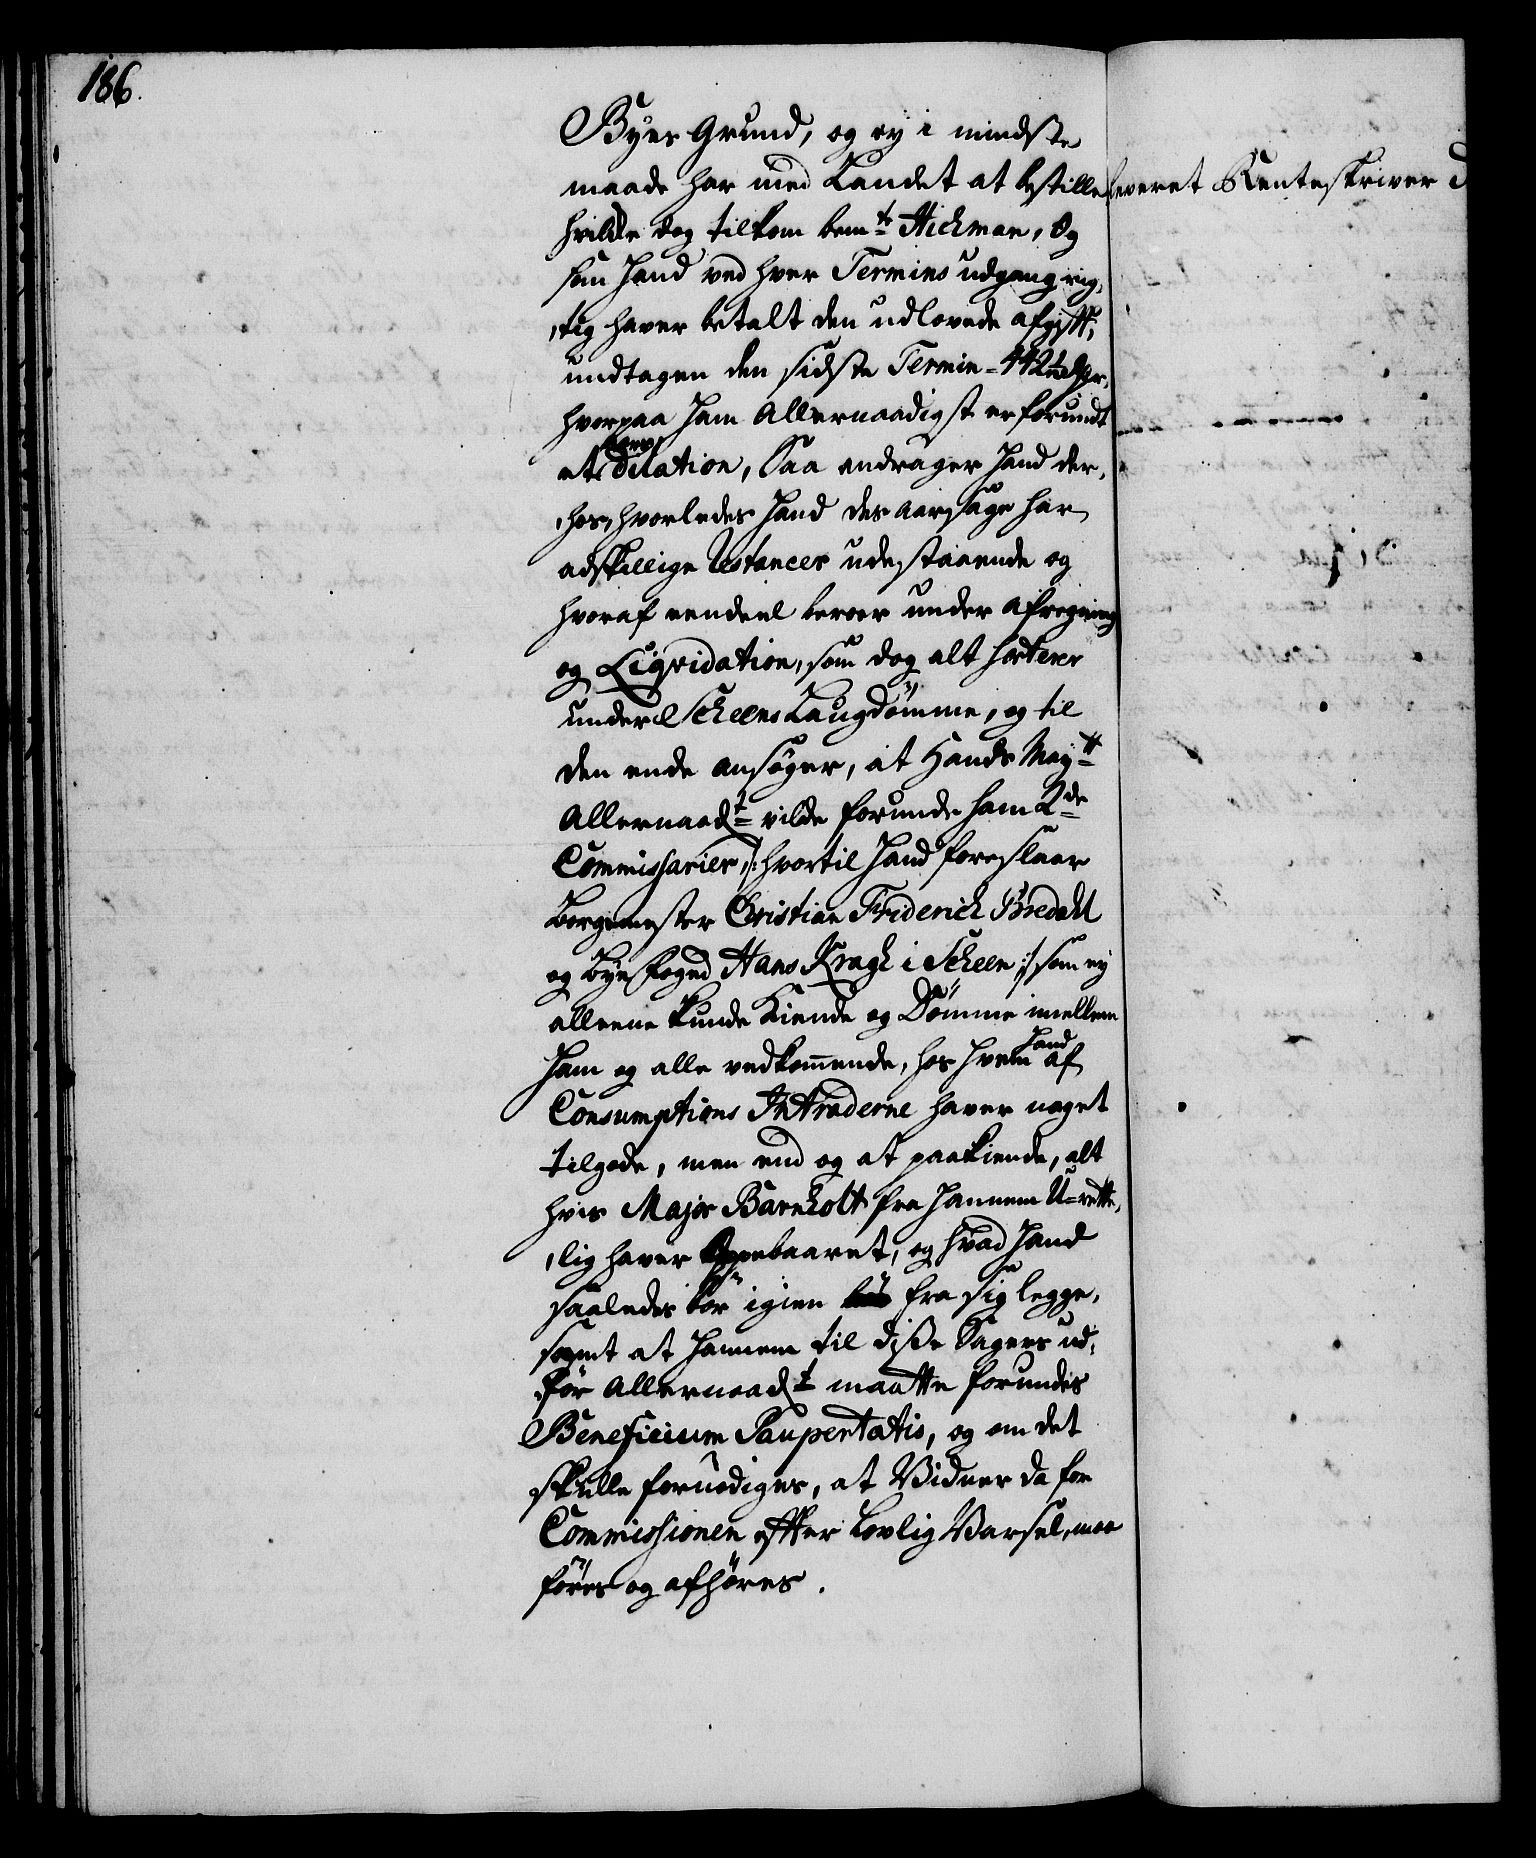 186.
Byes Grund, og ey i mindste
maade har med Landet at bestille
leveret Renteskriver
hvilke dog tilkom bemte Hickman, Og
som hand ved hver Termins udgang rig,
,tig haver betalt den udlovede afgift,
undtagen den sidste Termin
hvorpaa ham Allernaadigst er forundt
et aars
dilation, Saa andrager hand der,
,hos, hvorledes hand des aarsage har
adskillige Restancer udestaaende og
hvoraf eendeel beroer under afregning
og Liqvidation, som dog alt sorterer
under Scheens Laugdömme, og til
den ende ansøger, at Hands Maytt
Allernaadt vilde forunde ham 2de
Commissarier /: hvortil hand foreslaar
Borgemester Christian Friderich Bredahl
og Byefoged Hans Kragh i Scheen :/ som ey
alleene kunde Kiende og Dömme imellem
ham og alle vedkommende, hos hvem hand af
Consumptions Intraderne haver noget
tilgode, men end og at paakiende, alt
hvis Major Barnholt fra hannem U-rette,
,lig haver Oppebaaret, og hvad hand
saaledes bör igien fra sig legge,
samt at hannem til disse Sagers ud,
,för Allernaadt maatte forundes
Beneficium Paupertatis, og om det
skulle fornødiges, at Vidner da for
Commissionen efter Lovlig Varsel, maa
föres og afhöres.